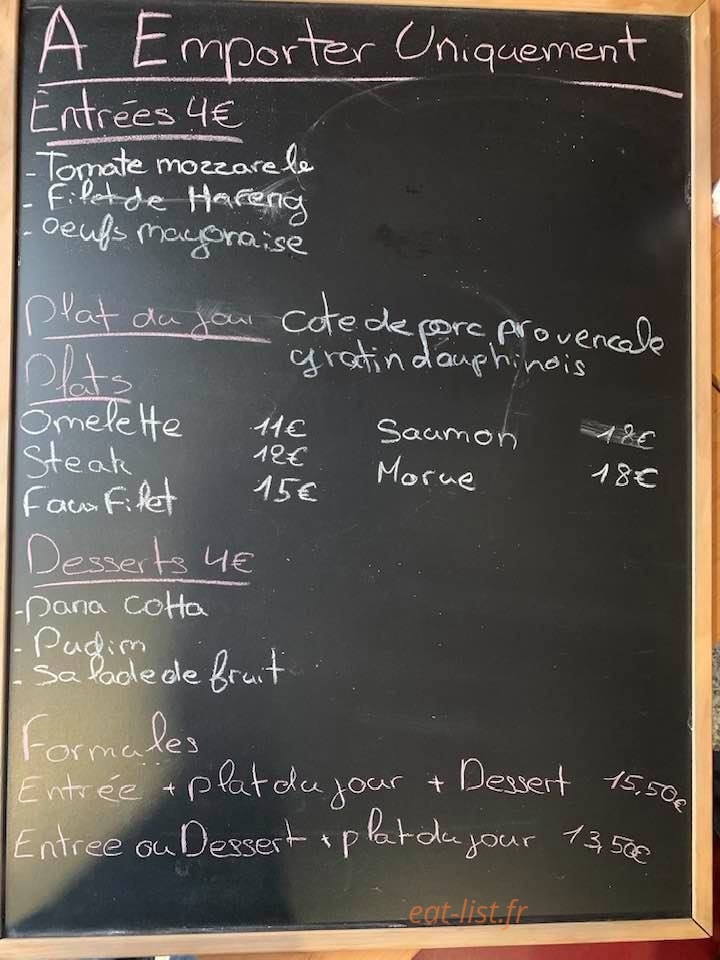 A Emporter Uniquement
Entrées 4€
- Tomate mozzarele
- Filet de Hareng
- oeufs mayonaise
Plat du jour cote de porc provencale
gratin dauphinois
Plats
Omelette 11€ Saumon 18€
Steak 12€ Morue 18€
Faux Filet 15€
Desserts 4€
- Pana cotta
- Pudim
- Salade de fruit
Formules
Entrée + plat du jour + Dessert 15,50€
Entree ou Dessert + plat du jour 13,50€
eat-list.fr